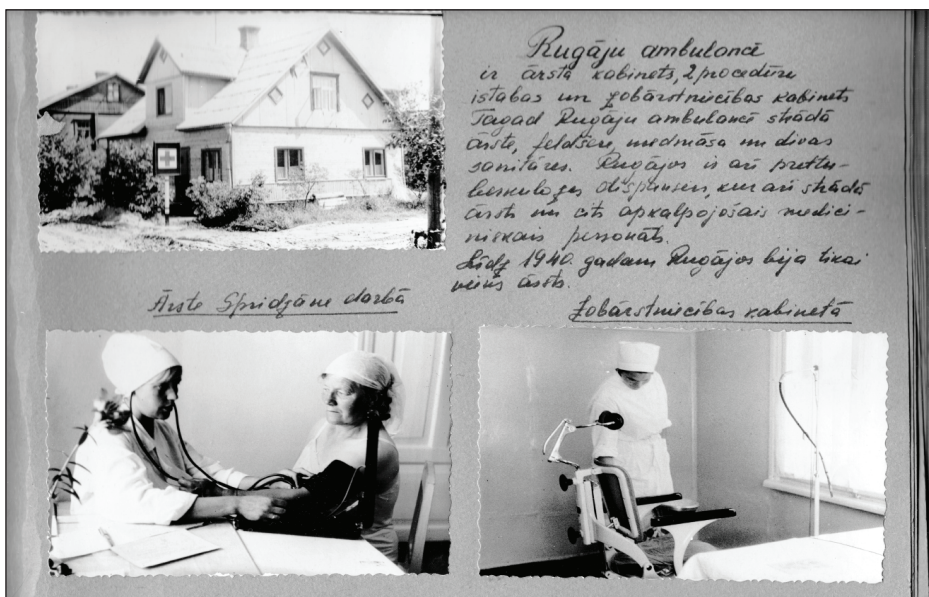 Rugāju ambulancē
ir ārsta kabinets, 2 procedūru
istabas un zobārstniecības kabinets
Tagad Rugāju ambulancē strādā
ārste, feldšere, medmāsa un divas
sanitāres. Rugājos ir arī prettu-
berkulozes dispansers, kur arī strādā
ārsts un cits apkalpojošais medici-
niskais personāls.
Līdz 1940. gadam Rugājos bija tikai
viens ārsts.
Ārste Spridzāne darbā
Zobārstniecības kabinetā